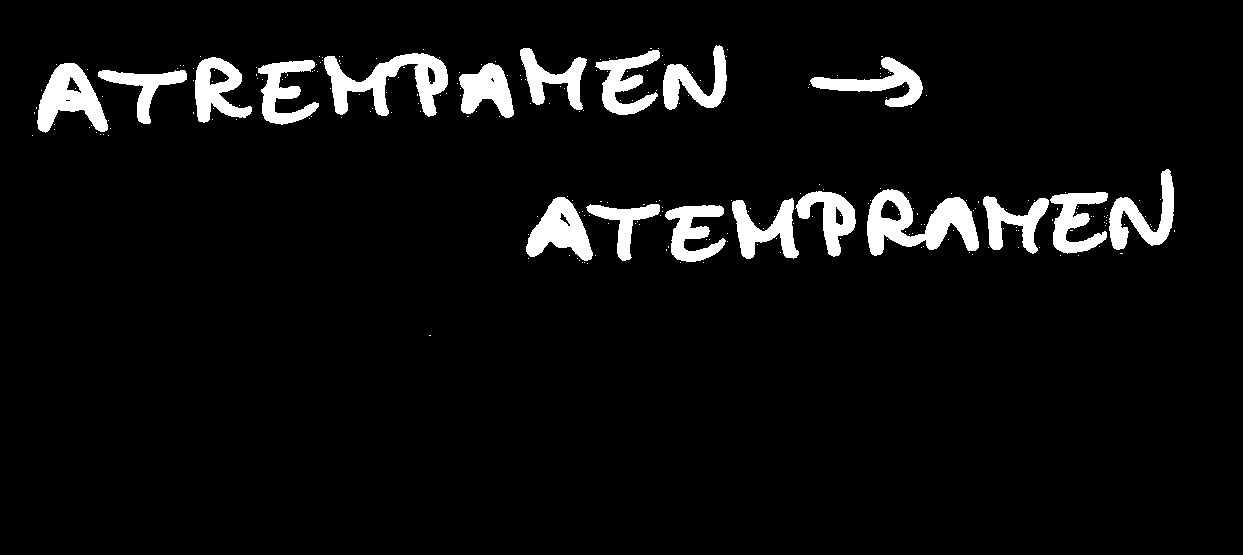 ATREMPAMEN →
ATEMPRAMEN